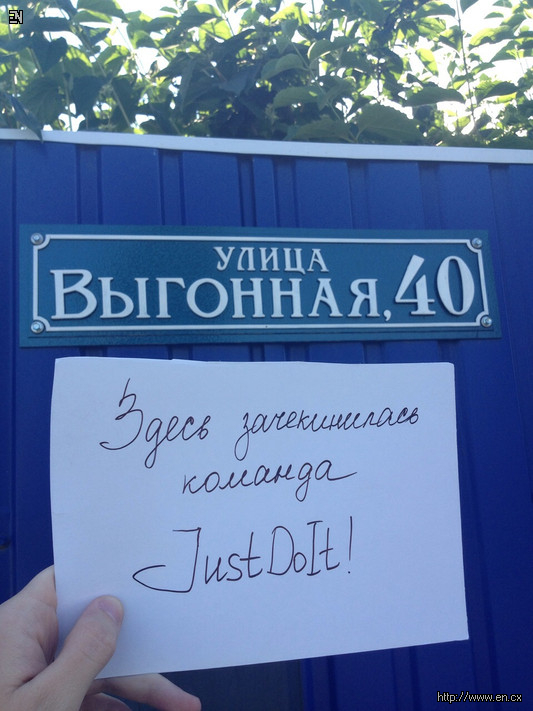 EN
УЛИЦА
ВЫГОННАЯ, 40
Здесь зачекинилась
команда
JustDoIt!
http://www.en.cx